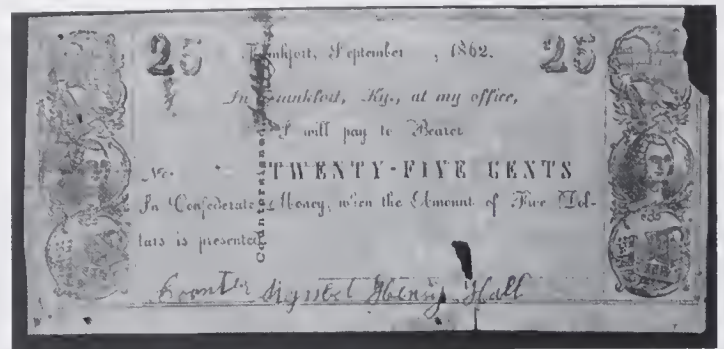 25 Frankfort, September , 1862. 25
In Frankfort, Ky., at my office,
I will pay to Bearer
No. TWENTY-FIVE CENTS
In Confederate Money, when the Amount of Five Dol-
lars is presented.
Countersigned
Henry Hall